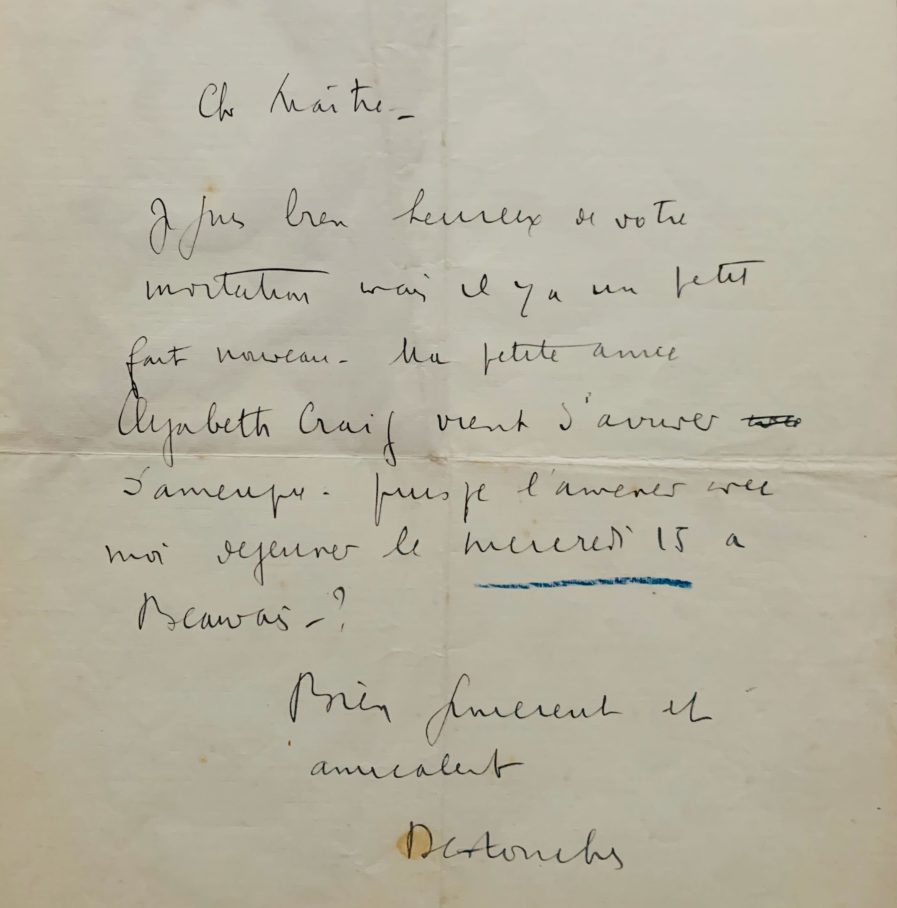 Ch Maître -
Je suis bien heureux de votre
invitation mais il y a un petit
fait nouveau - Ma petite amie
Elizabeth Craig vient d'arriver
d'amerique - puis je l'amener avec
moi dejeuner le mercredi 15 a
Beauvais - ?
Bien sincerent et
amicalent
Destouches